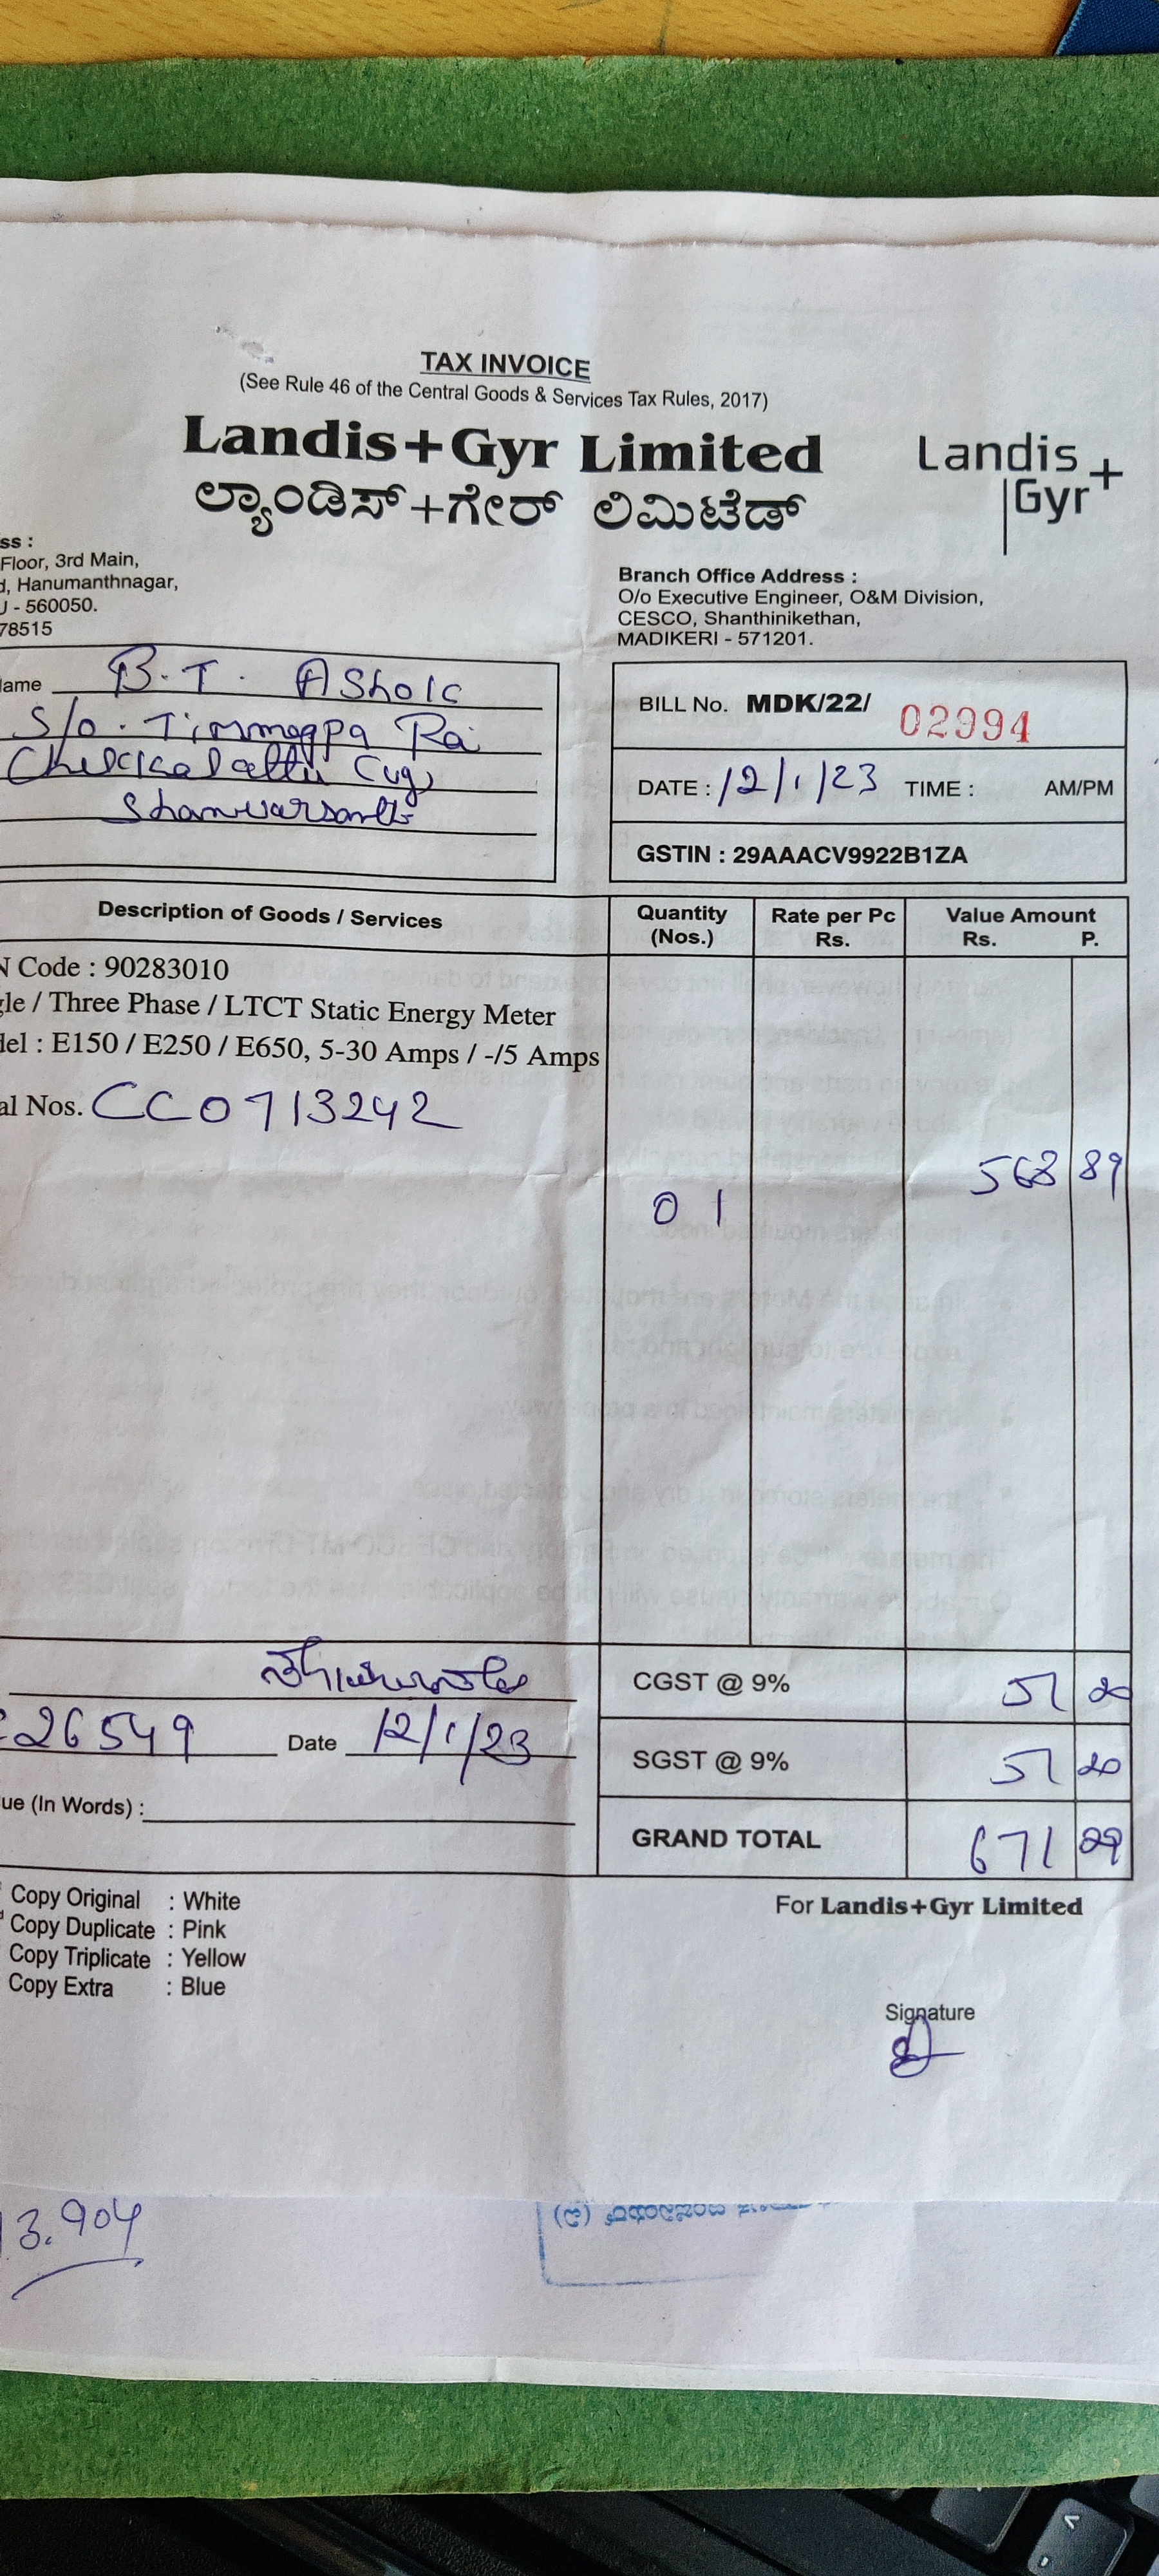 TAX INVOICE
(See Rule 46 of the Central Goods & Services Tax Rules, 2017)
Landis+Gyr Limited
ಲ್ಯಾಂಡಿಸ್+ಗೇರ್ ಲಿಮಿಟೆಡ್
Landis
Gyr+
ss :
Floor, 3rd Main,
d, Hanumanthnagar,
U - 560050.
78515
Branch Office Address :
O/o Executive Engineer, O&M Division,
CESCO, Shanthinikethan,
MADIKERI - 571201.
ame B.T. Ashok
S/o. Timmappa Rai
(vg)
BILL No. MDK/22/ 02994
DATE : 12/1/23 TIME : AM/PM
GSTIN : 29AAACV9922B1ZA
Description of Goods / Services Quantity (Nos.) Rate per Pc Rs. Value Amount Rs. P.
N Code : 90283010
gle / Three Phase / LTCT Static Energy Meter
del : E150 / E250 / E650, 5-30 Amps / -/5 Amps
al Nos. CC0713242
01 568 89
CGST @ 9% 51 20
26549 Date 12/1/23
SGST @ 9% 51 20
ue (In Words) :
GRAND TOTAL 671 29
Copy Original : White
Copy Duplicate : Pink
Copy Triplicate : Yellow
Copy Extra : Blue
For Landis+Gyr Limited
Signature
3.904